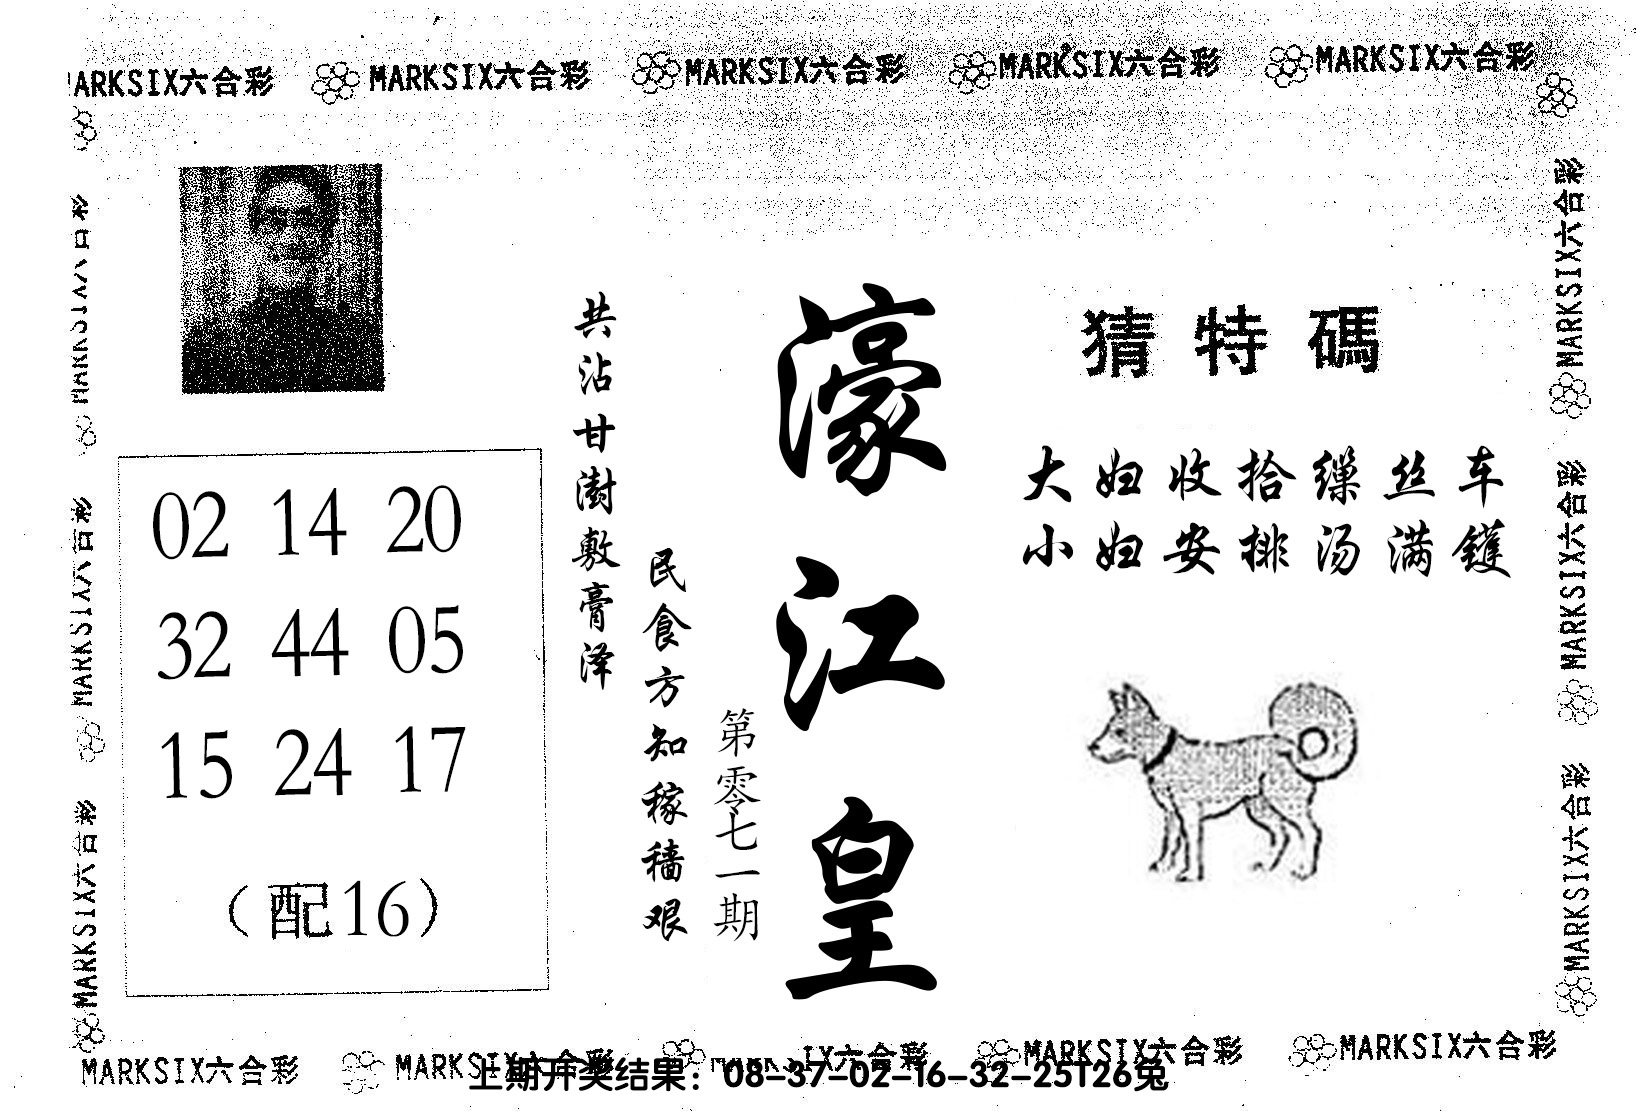 MARKSIX六合彩 MARKSIX六合彩 MARKSIX六合彩 MARKSIX六合彩 MARKSIX六合彩
猜特碼
大妇收拾缫丝车
小妇安排汤满镬
濠江皇
第零七一期
民食方知稼穑艰
共沾甘澍敷膏泽
02 14 20
32 44 05
15 24 17
（配16）
MARKSIX六合彩
MARKSIX六合彩
MARKSIX六合彩
MARKSIX六合彩
MARKSIX六合彩
MARKSIX六合彩
MARKSIX六合彩 MARKSIX六合彩 MARKSIX六合彩 MARKSIX六合彩
上期开奖结果：08-37-02-16-32-25T26兔